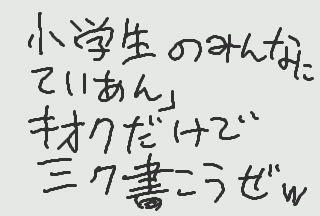 小学生のみんなに
ていあん」
キオクだけで
ミク書こうぜw